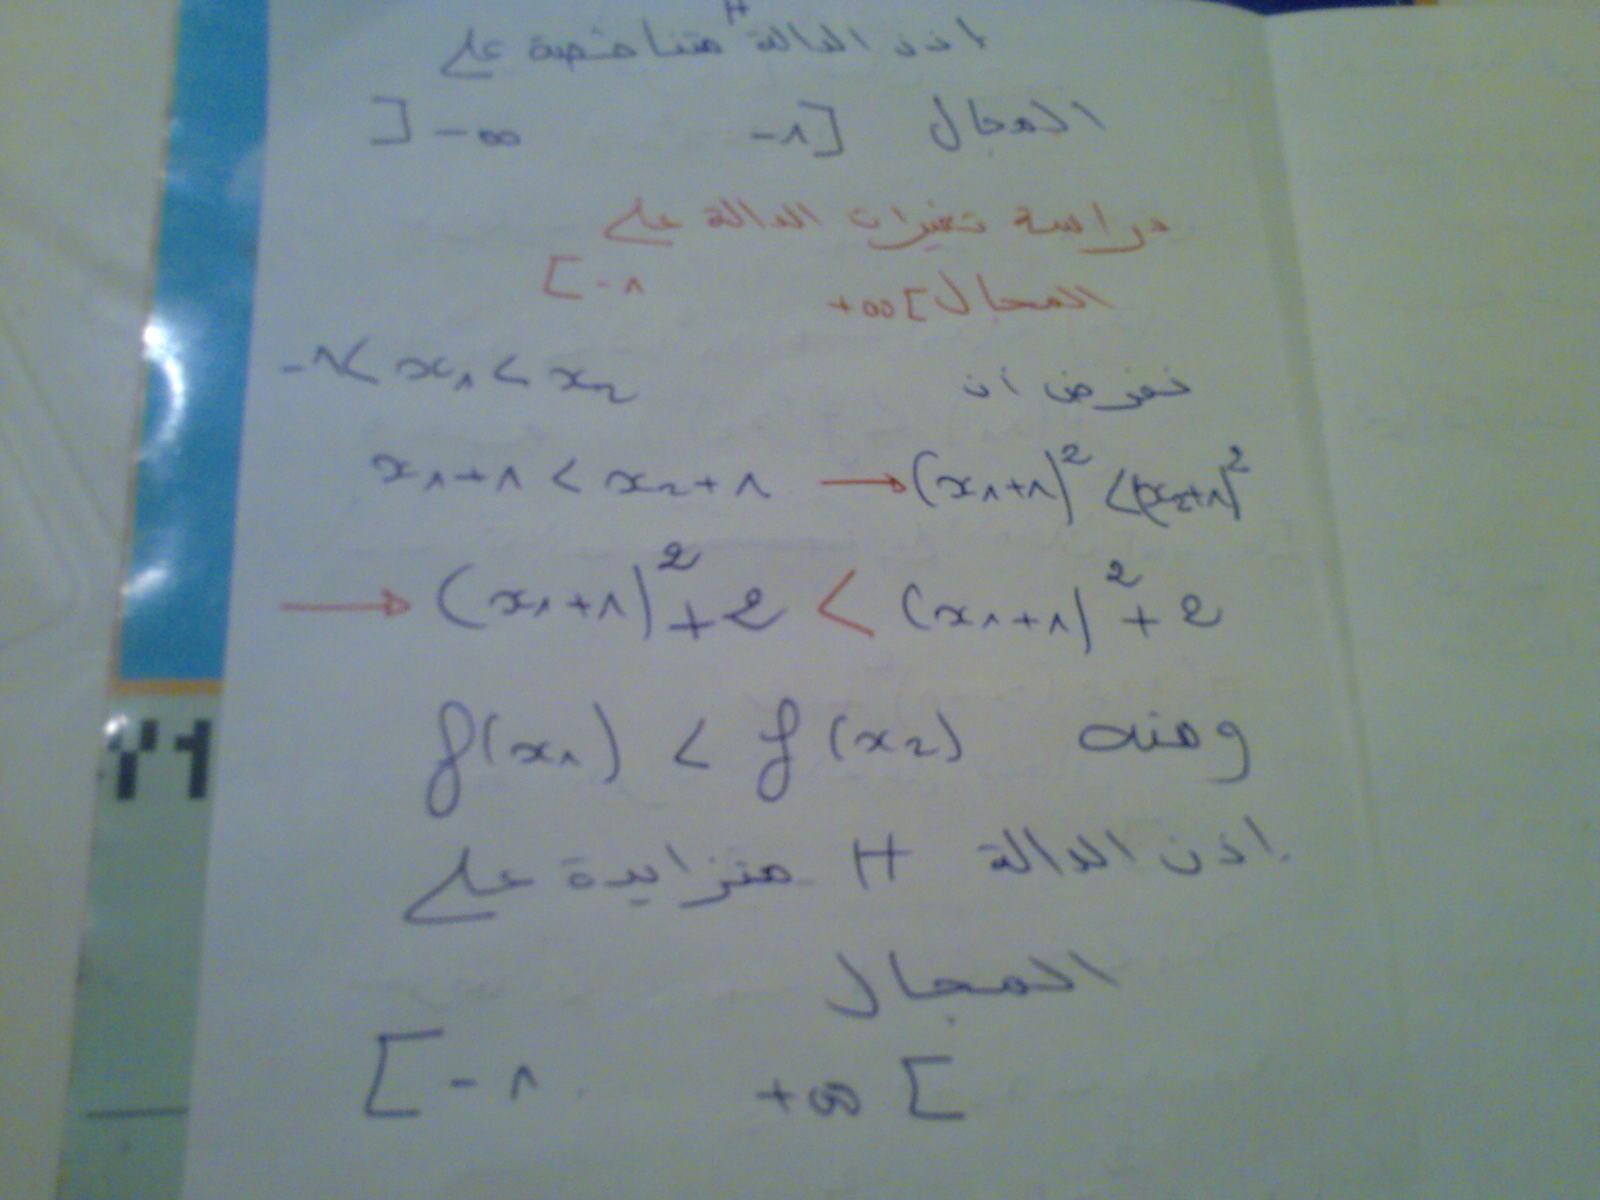 اذن الدالة H متناقصة على
المجال ]-∞ -1]
دراسة تغيرات الدالة على
المجال [-1 +∞[
نفرض أن -1< x1 < x2
x1+1 < x2+1 → (x1+1)² <(x2+1)²
→ (x1+1)²+2 < (x1+1)²+2
ومنه f(x1) < f(x2)
اذن الدالة H متزايدة على
المجال
[-1 +∞[